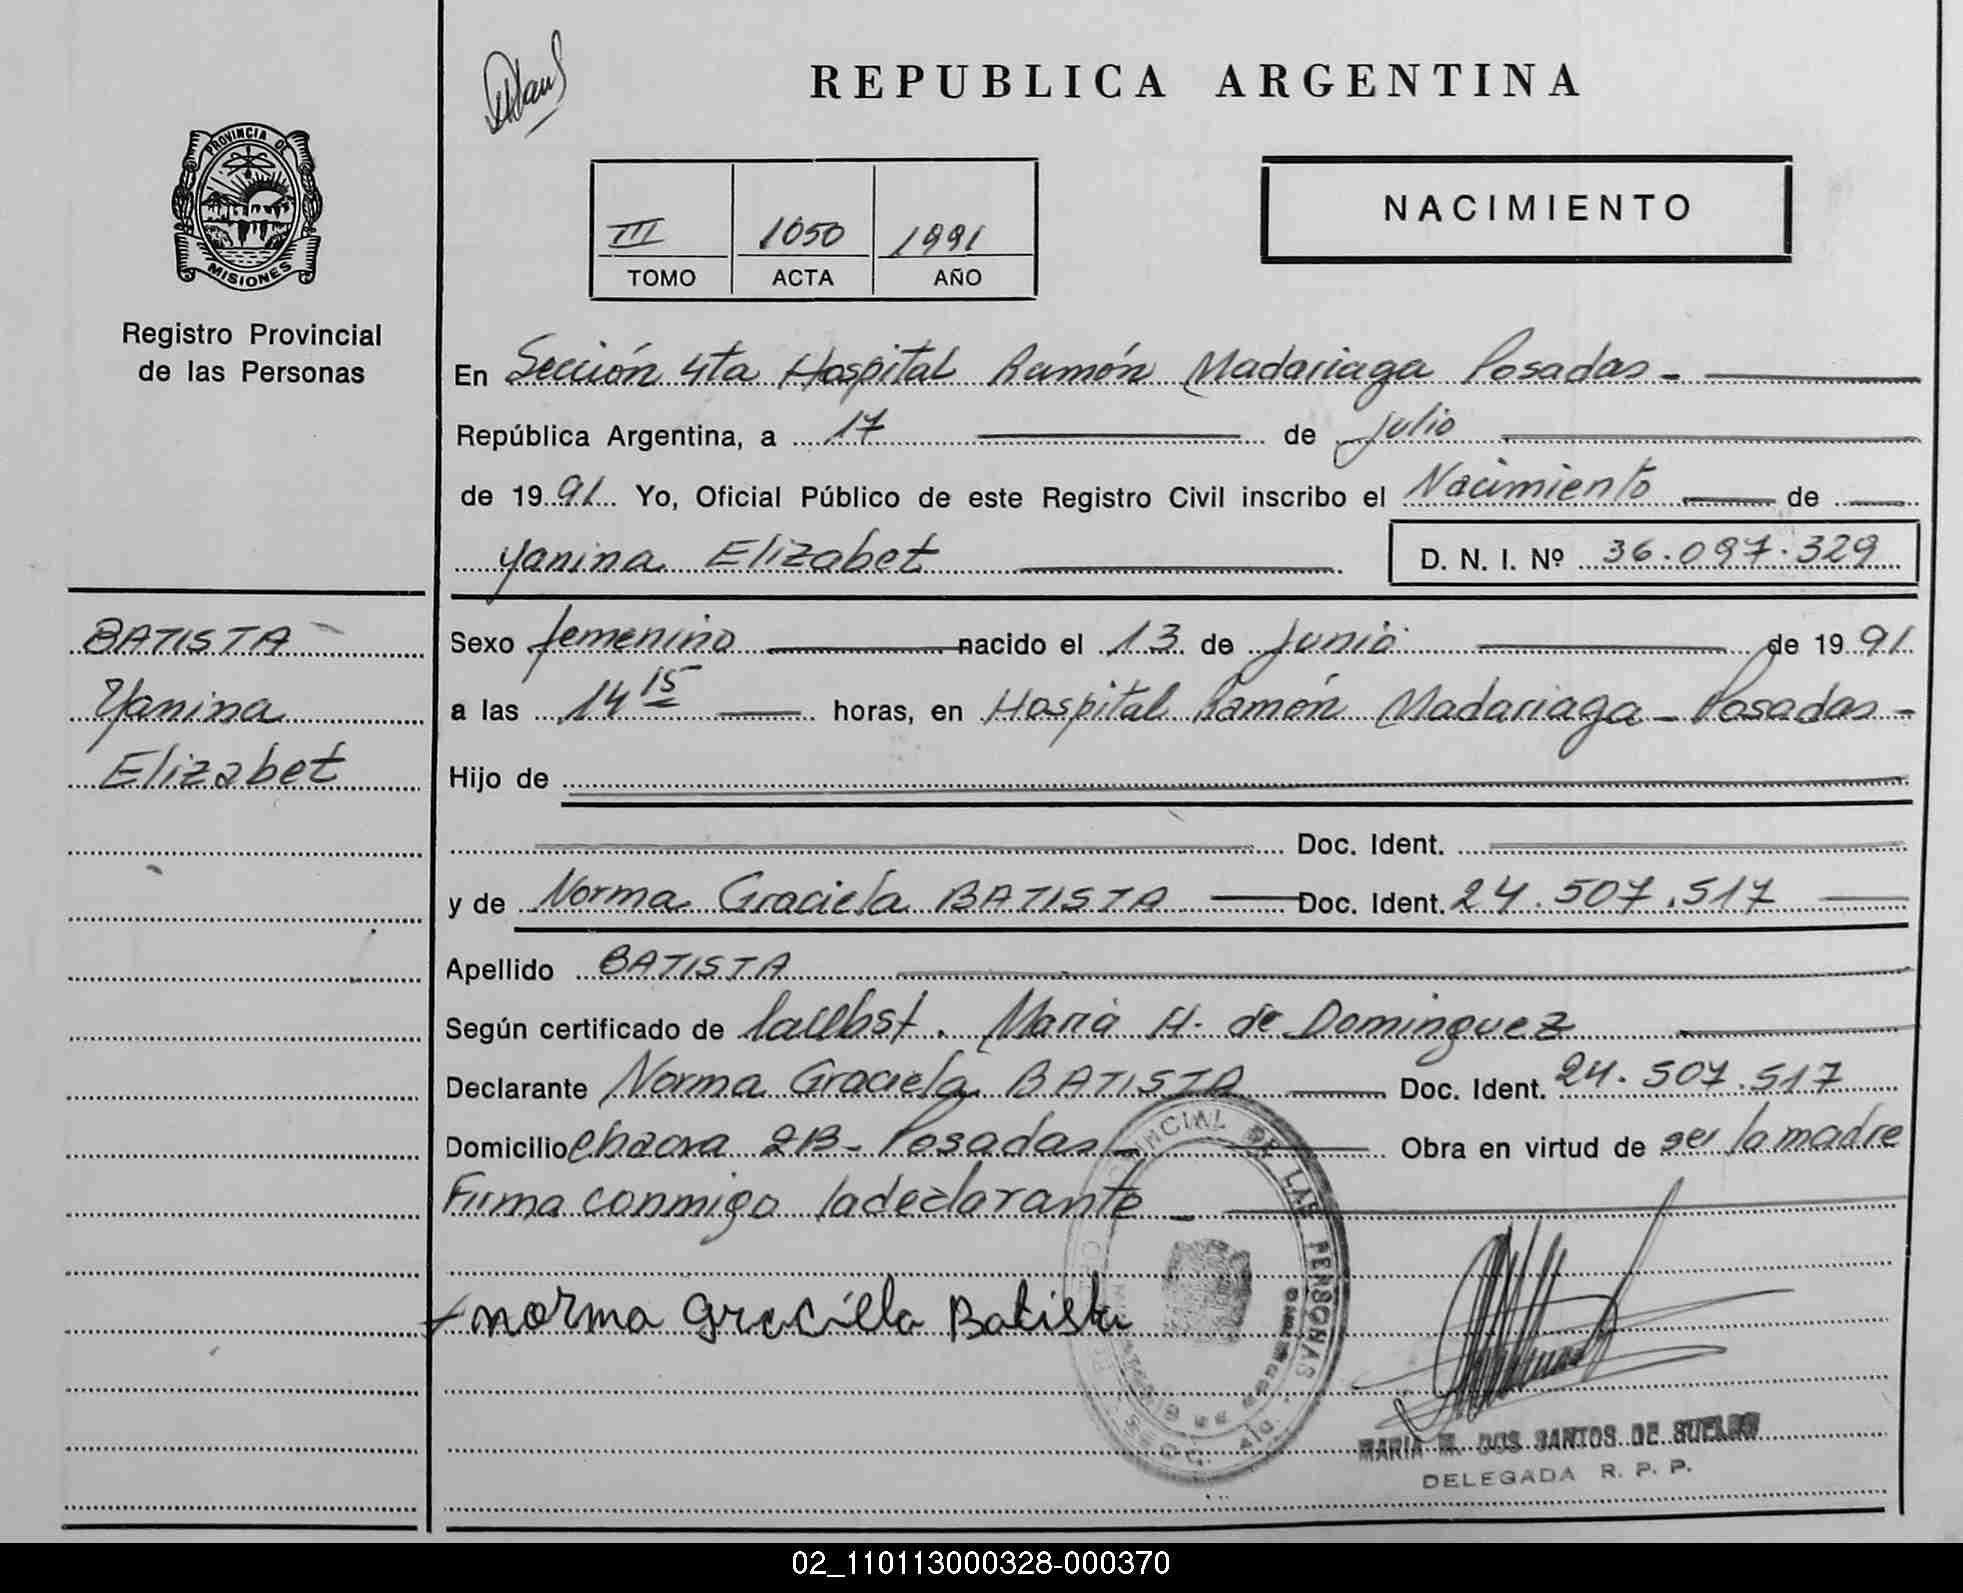 REPUBLICA ARGENTINA
PROVINCIA DE
MISIONES
Registro Provincial
de las Personas
III 1050 1991
TOMO ACTA AÑO
NACIMIENTO
En Sección 4ta Hospital Ramón Madariaga Posadas -
República Argentina, a 17 de julio
de 1991 Yo, Oficial Público de este Registro Civil inscribo el Nacimiento de
Yanina Elizabet D. N. I. Nº 36.097.329
BATISTA
Yanina
Elizabet
Sexo femenino nacido el 13 de junio de 1991
a las 14 15 horas, en Hospital Ramón Madariaga - Posadas -
Hijo de
Doc. Ident.
y de Norma Graciela BATISTA Doc. Ident. 24.507.517
Apellido BATISTA
Según certificado de Maria H. de Dominguez
Declarante Norma Graciela BATISTA Doc. Ident. 24.507.517
Domicilio Posadas Obra en virtud de ser la madre
Firma conmigo la declarante -
norma Graciela Batista
PROVINCIAL DE LAS PERSONAS
MARIA M. DOS SANTOS DE SUELDO
DELEGADA R. P. P.
02_110113000328-000370